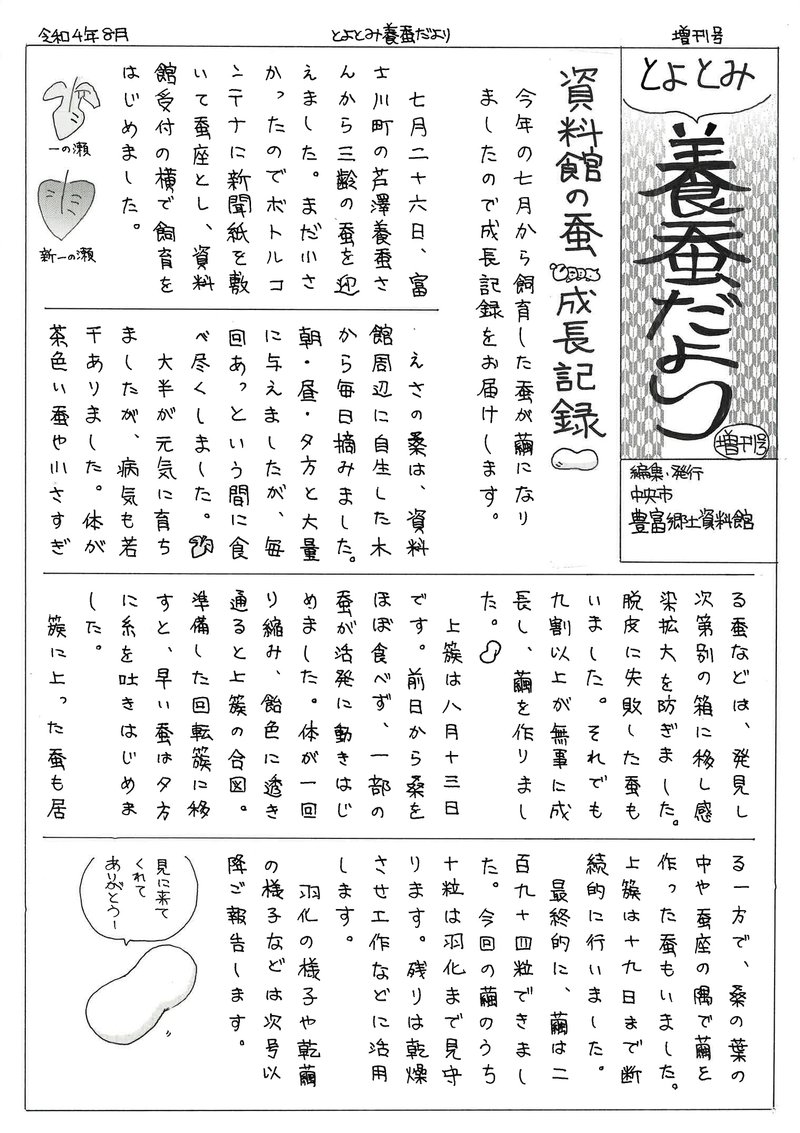 令和4年8月
とよとみ養蚕だより
増刊号
とよとみ
養蚕だより
増刊号
編集・発行
中央市
豊富郷土資料館
資料館の蚕
成長記録
今年の七月から飼育した蚕が繭になり
ましたので成長記録をお届けします。
七月二十六日、富
士川町の芦澤養蚕さ
んから三齢の蚕を迎
えました。まだ小さ
かったのでボトルコ
ンテナに新聞紙を敷
いて蚕座とし、資料
館受付の横で飼育を
はじめました。
一の瀬
新一の瀬
えさの桑は、資料
館周辺に自生した木
から毎日摘みました。
朝・昼・夕方と大量
に与えましたが、毎
回あっという間に食
べ尽くしました。
大半が元気に育ち
ましたが、病気も若
干ありました。体が
茶色い蚕や小さすぎ
る蚕などは、発見し
次第別の箱に移し感
染拡大を防ぎました。
脱皮に失敗した蚕も
いました。それでも
九割以上が無事に成
長し、繭を作りまし
た。
上蔟は八月十三日
です。前日から桑を
ほぼ食べず、一部の
蚕が活発に動きはじ
めました。体が一回
り縮み、飴色に透き
通ると上蔟の合図。
準備した回転蔟に移
すと、早い蚕は夕方
に糸を吐きはじめま
した。
蔟に上った蚕も居
る一方で、桑の葉の
中や蚕座の隅で繭を
作った蚕もいました。
上蔟は十九日まで断
続的に行いました。
最終的に、繭は二
百九十四粒できまし
た。今回の繭のうち
十粒は羽化まで見守
ります。残りは乾燥
させ工作などに活用
します。
羽化の様子や乾繭
の様子などは次号以
降ご報告します。
見に来て
くれて
ありがとうー